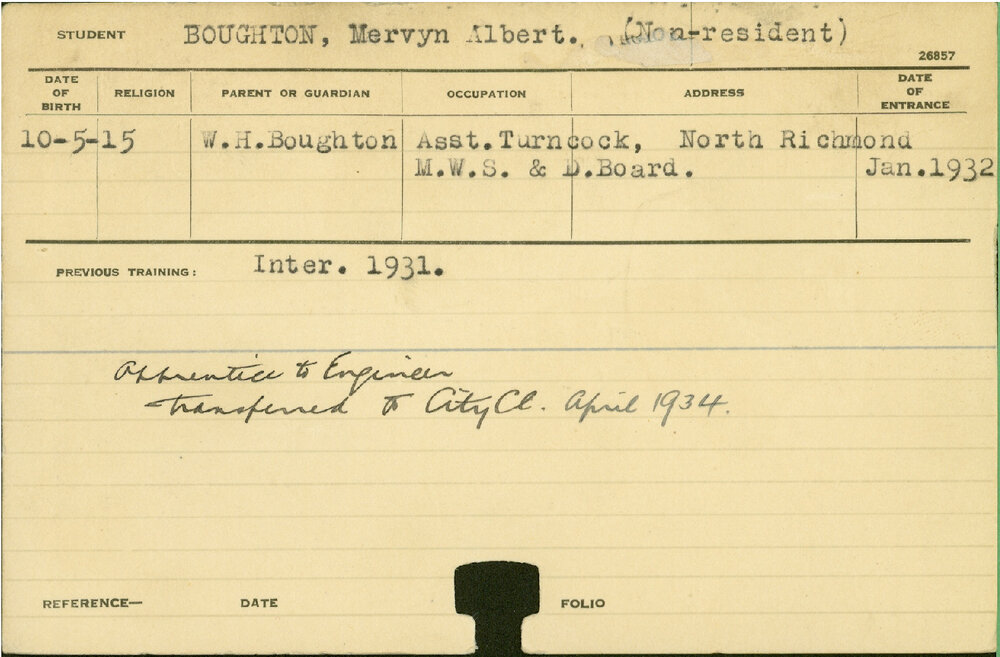 STUDENT BOUGHTON, Mervyn Albert. (Non-resident)
26857
DATE OF BIRTH RELIGION PARENT OR GUARDIAN OCCUPATION ADDRESS DATE OF ENTRANCE
10-5-15 W.H.Boughton Asst.Turncock, North Richmond
M.W.S. & D.Board. Jan.1932
PREVIOUS TRAINING: Inter. 1931.
Apprentice to Engineer
transferred to City Cl. April 1934.
REFERENCE— DATE FOLIO